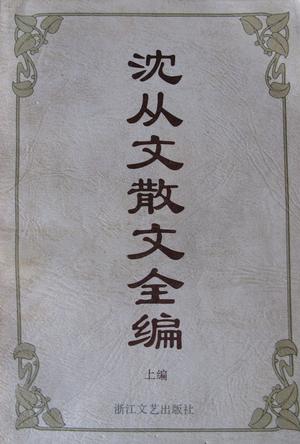 沈从文散文全编
上编
浙江文艺出版社